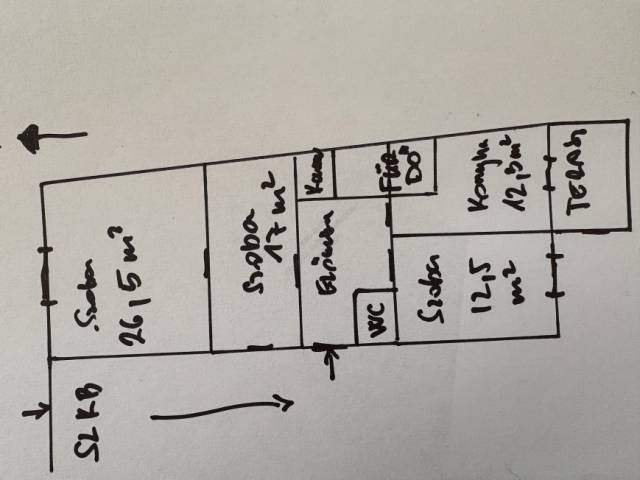 Szoba
26,5 m²
Szoba
17 m²
Kamra
Előszoba
WC
FÜR
DŐ
Konyha
12,5 m²
Szoba
12,5
m²
TERASZ
SZKB